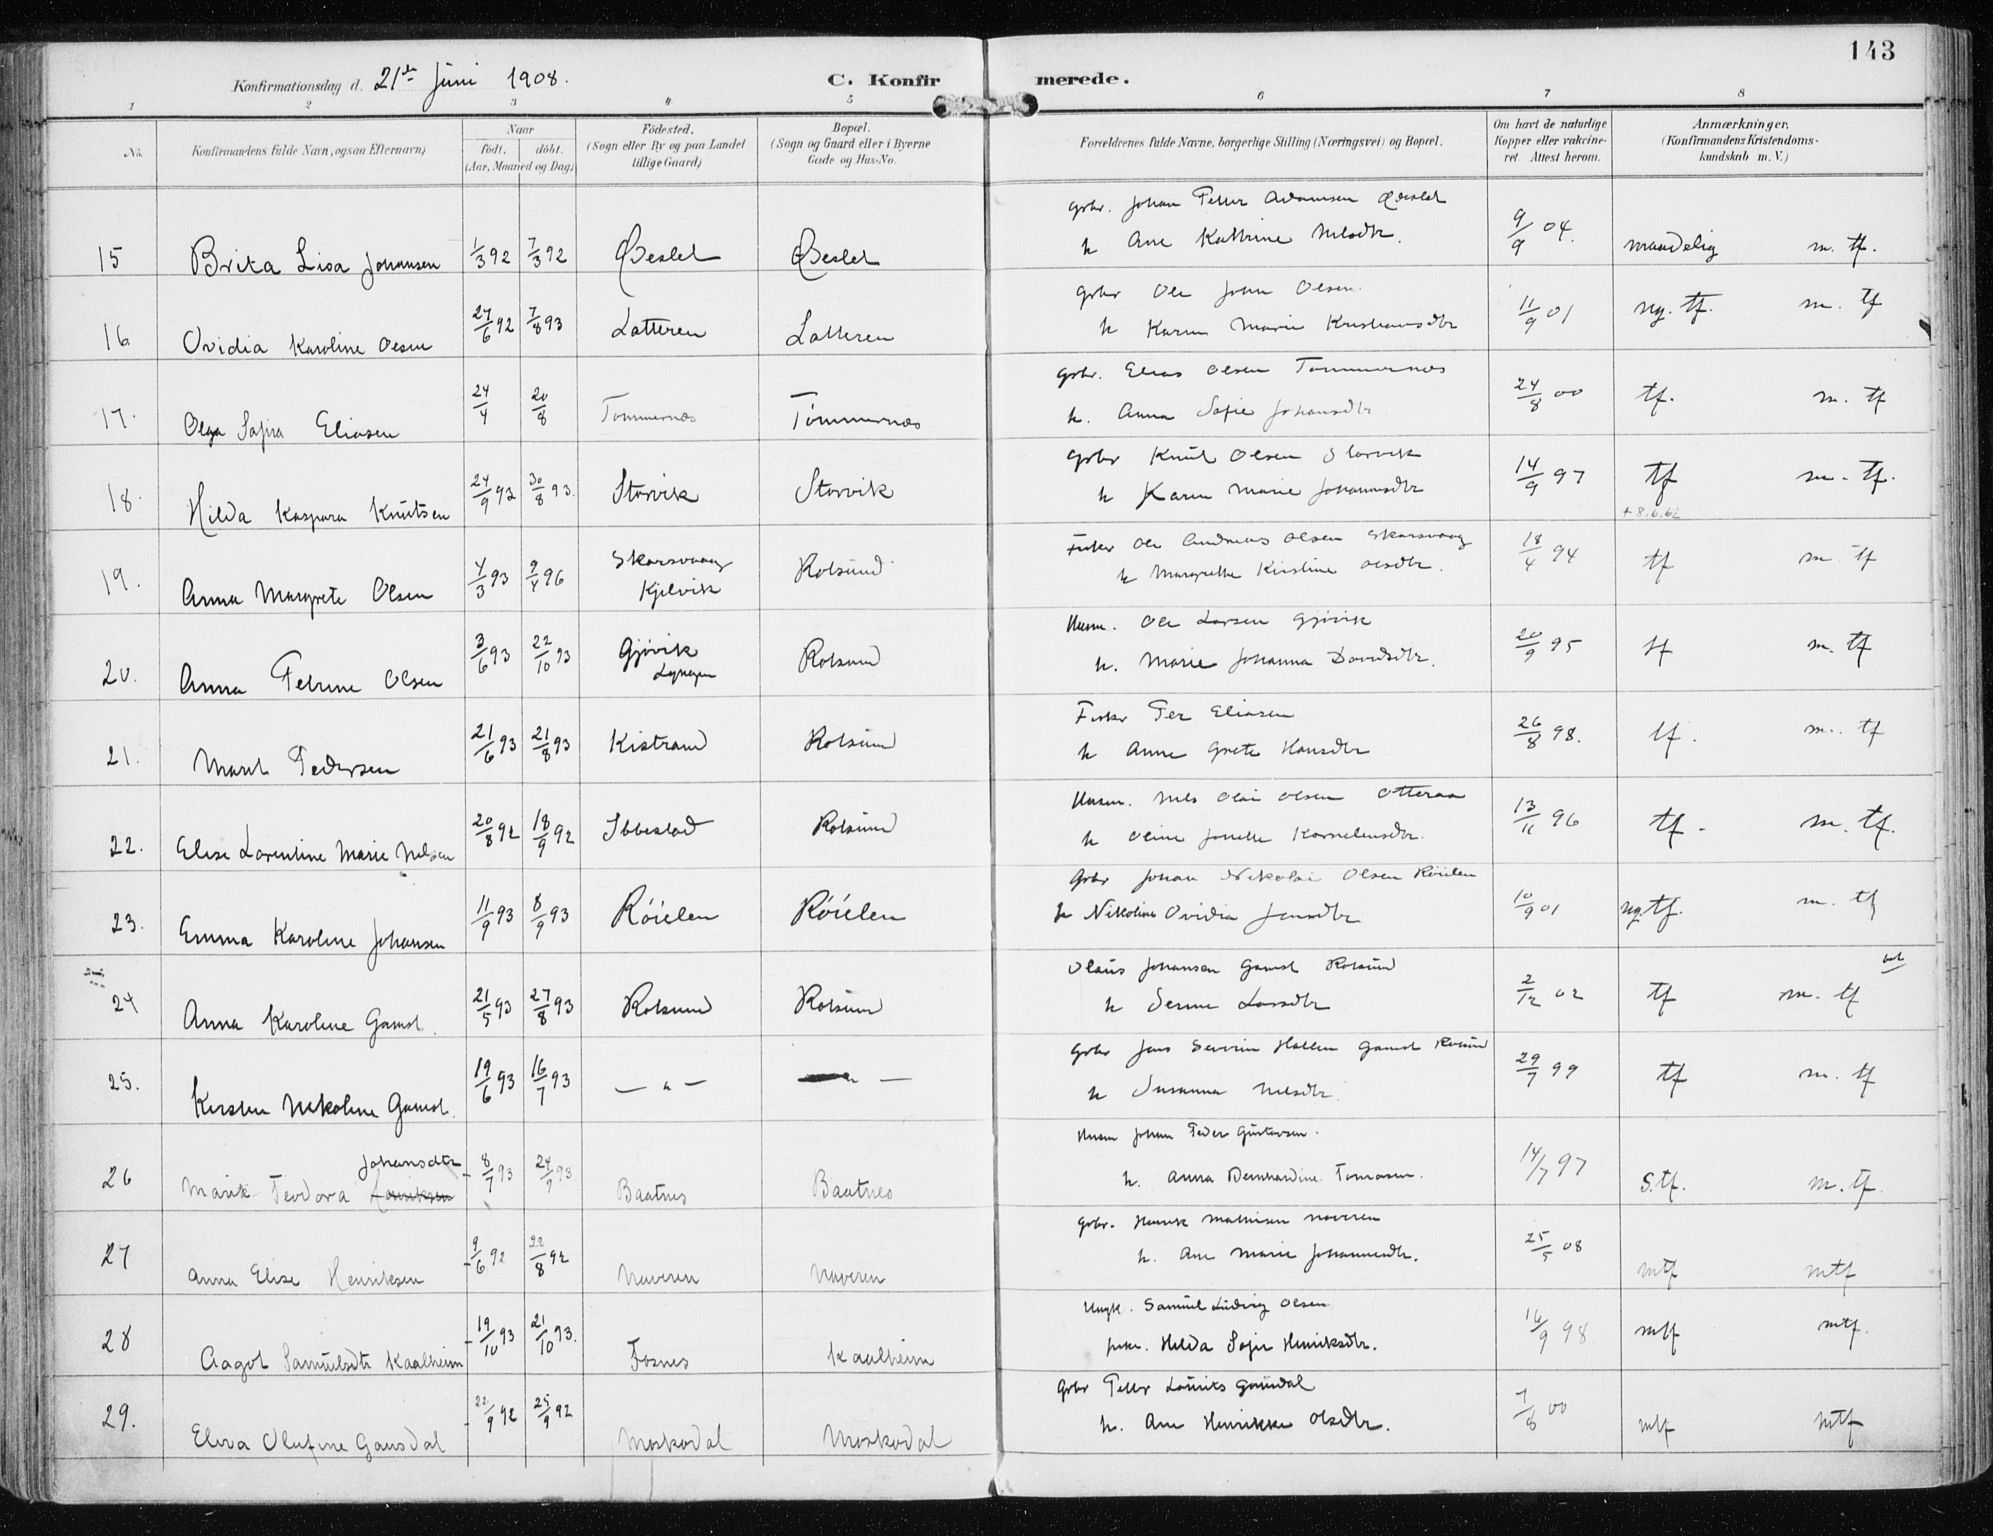 143
Konfirmationsdag d. 21de Juni 1908.
C. Konfirmerede.
1 2 3 4 5 6 7 8
No. Konfirmandens fulde Navn, ogsaa Efternavn)
Naar
født. døbt.
(Aar, Maaned og Dag)
Fødested.
(Sogn eller By og paa Landet
tillige Gaard)
Bopæl.
(Sogn og Gaard eller i Byerne
Gade og Hus-No.
Forældrenes fulde Navne, borgerlige Stilling (Næringsvei) og Bopæl.
Om havt de naturlige
Kopper eller vakcine-
ret Attest herom.
Anmærkninger.
(Konfirmandens Kristendoms-
kundskab m. V.)
Gbr. Johan Petter Adamsen
15 Brita Lisa Johansen 1/3 92 7/3 92 h Ane Kathrine Nilsdtr. 9/9 04. maadelig m. tf.
Gbr Ole John Olsen
16 Ovidia Karoline Olsen 27/6 92 7/8 93 Latteren Latteren h Karen Marie Kristiansdtr 11/9 01 ng. tf. m. tf
Gbr. Elias Olsen Tømmernæs
17. Olga Sofia Eliasen 24/4 20/8 Tømmernæs Tømmernæs h. Anna Sofie Johansdtr 24/8 00 tf. m. tf
Gbr Knut Olsen Storvik
18. Hilda Kaspara Knutsen 24/9 92 30/8 93. Storvik Storvik h Karen Marie Johannesdtr 14/9 97 tf m. tf.
+ 8.6.62
Fisker Ole Andreas Olsen Skarsvaag
19. Anna Margrete Olsen 4/3 93 9/4 96 Skarsvaag Kjelvik Rotsund h Margrethe Kirstine Olsdtr. 18/4 94 tf m. tf
Husm. Ole Larsen Gjøvik
20. Anna Petrine Olsen 3/6 93 22/10 93 Gjøvik Lyngen Rotsund h. Marie Johanna Davidsdtr. 20/9 95 tf m. tf
Fisker Per Eliasen
21. Marit Pedersen 21/6 93 21/8 93 Kistrand Rotsund h Anne Grete Hansdtr 26/8 98. tf. m. tf
Husm. Nils Olai Olsen Otteraa
22. Elise Lorentine Marie Nilsen 20/8 92 18/9 92 Ibbestad Rotsund h Oline Jonette Korneliusdtr. 13/11 96 tf. m. tf.
Gbr Johan Nikolai Olsen Røielen
23. Emma Karoline Johansen 11/9 93 8/9 93 Røielen Røielen h Nikoline Ovidia Jensdtr 10/9 01 ng. tf. m. tf
Olaus Johansen Gamst Rotsund
24 Anna Karoline Gamst. 21/5 93 27/8 93 Rotsund Rotsund h Serine Larsdtr 2/12 02 tf m. tf
Gbr Jens Severin Hallen Gamst Rotsund
25. Kirsten Nikoline Gamst. 19/6 93 16/7 93 — " — — " — h Susanna Nilsdtr. 29/7 99 tf m. tf
Husm Johan Peder Gustavsen.
Johansdtr
26 Marit Teodora Henriksen 8/7 93 24/9 93 Baatnes Baatnes h. Anna Bernhardine Tomasen. 14/7 97 s. tf. m. tf.
Gbr. Henrik Mathisen Naveren
27 Anna Elise Henriksen 9/6 92 22/8 92 Naveren Naveren h. Ane Marie Johannesdtr. 25/5 08 mtf mtf
Ungk. Samuel Ludvig Olsen
28 Aagot Samuelsdtr Kaalheim 19/10 93 21/10 93. Fosnes Kaalheim pike. Hilda Sofie Henriksdtr. 16/9 98 mtf mtf.
Gbr Petter Laurits Gausdal
29. Eliva Olufine Gausdal 22/9 92 25/9 92 Moskodal Moskodal h. Ane Henrikke Olsdtr. 7/8 00 mtf mtf